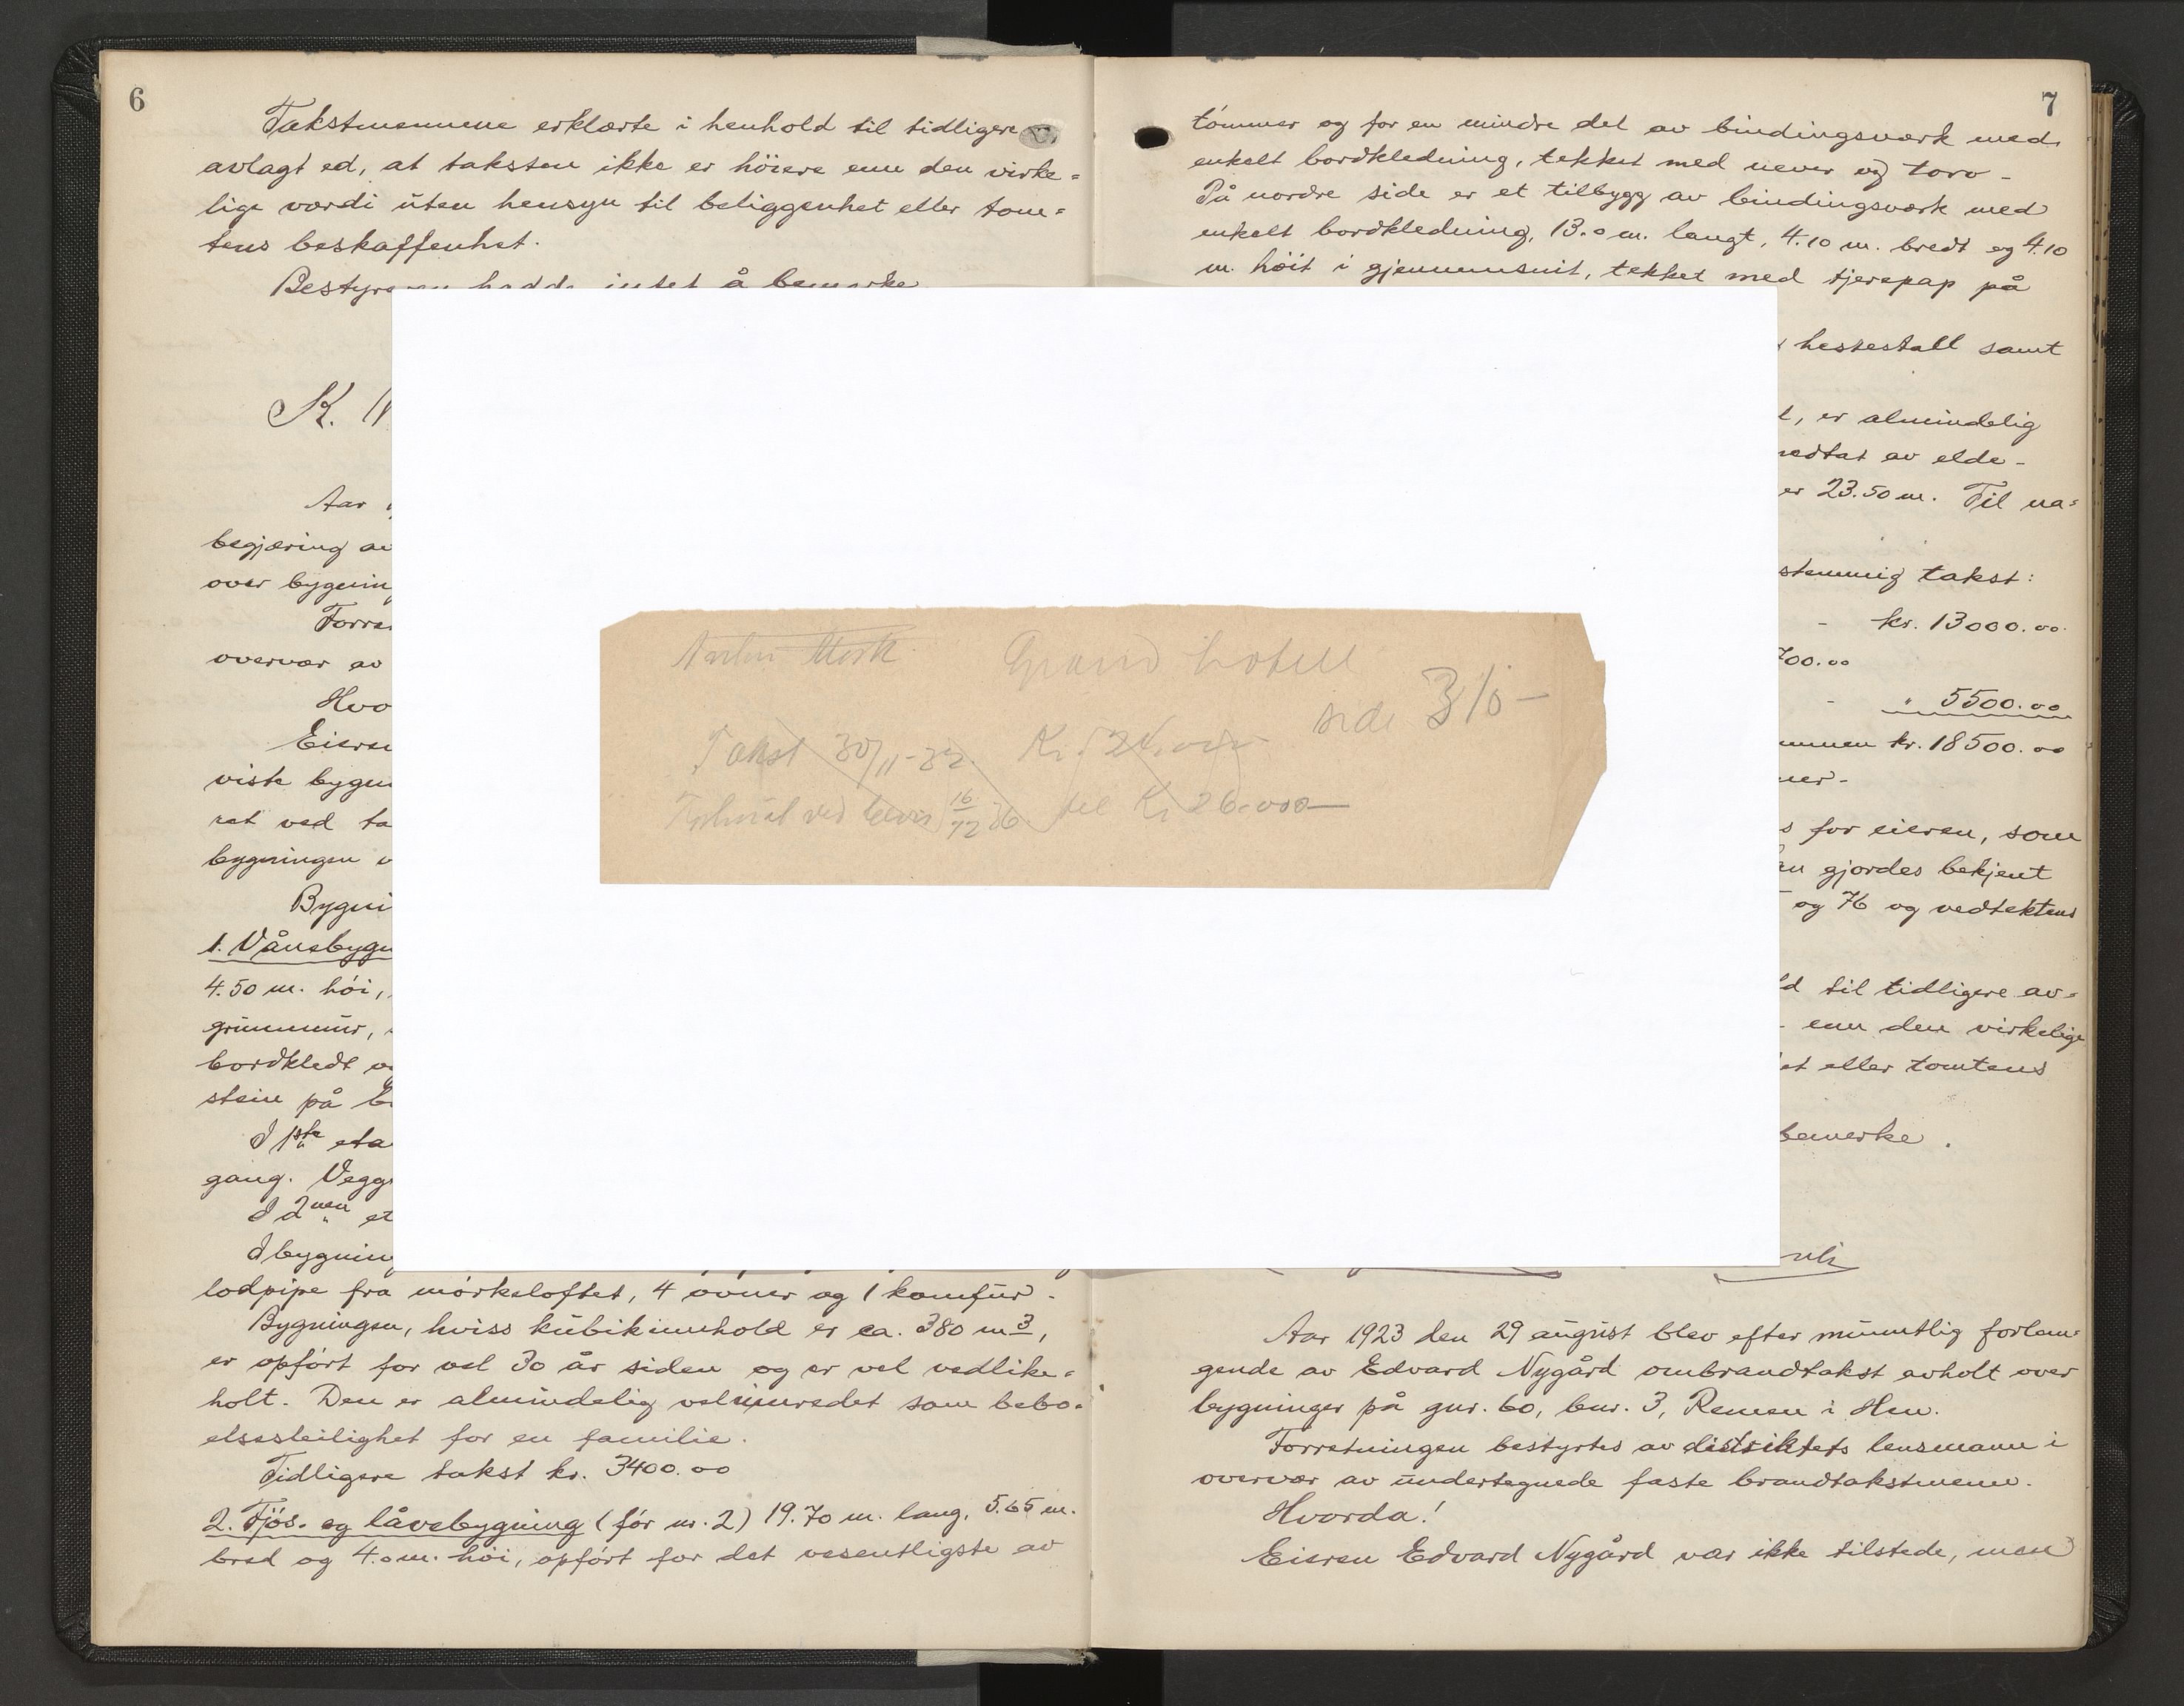 6
Takstmennene erklærte i henhold til tidligere
avlagt ed, at taksten ikke er höiere enn den virke=
lige værdi uten hensyn til beliggenhet eller tom=
tens beskaffenhet.
Bestyreren hadde intet å bemerke
K.
Aar
begjæring av
over bygnin
Forre
overvær av
Hvo
Eieren
viste bygn
ret ved ta
bygningen
Bygni
1. Vånebygn
4.50 m. höi,
grunnmur,
bordkledt
stein på
I 1ste eta
gang. Vegg
I 2nen et
I bygnin
lodpipe fra mörkeloftet, 4 ovner og 1 komfur.
Bygningen, hviss kubikinnhold er ca. 380 m3,
er opfört for vel 30 år siden og er vel vedlike=
holt. Den er almindelig velinnredet som bebo=
elsesleilighet for en familie.
Tidligere takst kr. 3400.00
2. Fjös- og låvebygning (för nr. 2) 19.70 m. lang, 5.65 m.
bred og 4.0 m. höi, opfört for det vesentligste av
Grand hotell
side 310-
Takst 30/11-32. Kr. 24.000
16/12 36 til Kr 26.000
7
tömmer og for en mindre del av bindingsverk med
enkelt bordkledning, tekket med never og torv-
På nordre side er et tilbygg av bindingsverk med
enkelt bordkledning, 13.0 m. langt, 4.10 m. bredt og 4.10
m. höit i gjennemsnit, tekket med tjerepap på
hestestall samt
, er almindelig
medtat av elde-
er 23.50 m. Til na=
stemmig takst:
- kr. 13000.00
700.00
- " 5500.00
ammen kr. 18500.00
ner-
s for eieren, som
an gjordes bekjent
og 76 og vedtektens
ld til tidligere av=
- enn den virkelige
et eller tomtens
bemerke.
Aar 1923 den 29 august blev efter mundtlig forlan=
gende av Edvard Nygård ombrandtakst avholt over
bygninger på gnr. 60, bnr. 3, Remen i Hen.
Forretningen bestyrtes av distriktets lensmann i
overvær av undertegnede faste brandtakstmenn.
Hvorda!
Eieren Edvard Nygård var ikke tilstede, men